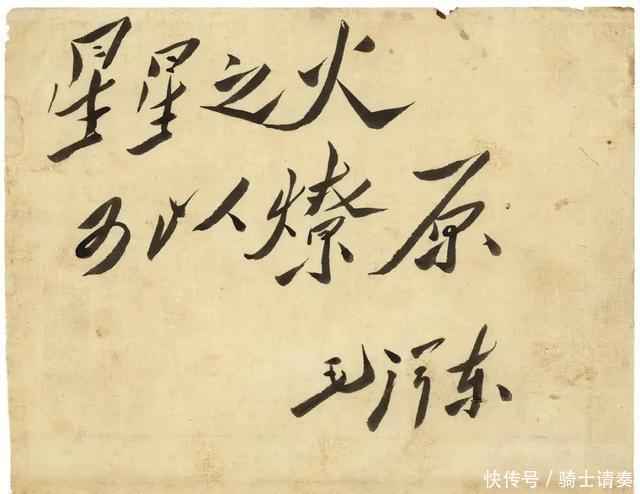 星星之火
可以燎原
毛泽东
快传号/骑士请奏